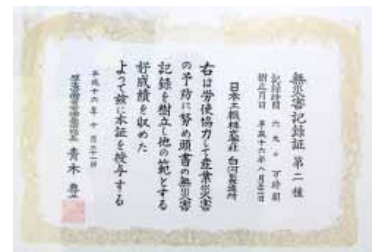 無災害記録証 第二種
記録時間 六九〇万時間
樹立月日 平成十六年八月三十一日
日本工機株式会社 白河製造所
右は労使協力して産業災害
の予防に努め頭書の無災害
記録を樹立し他の範とする
好成績を収めた
よって玆に本証を授与する
平成十六年十月二十一日
厚生労働省労働基準局長 青木 豊